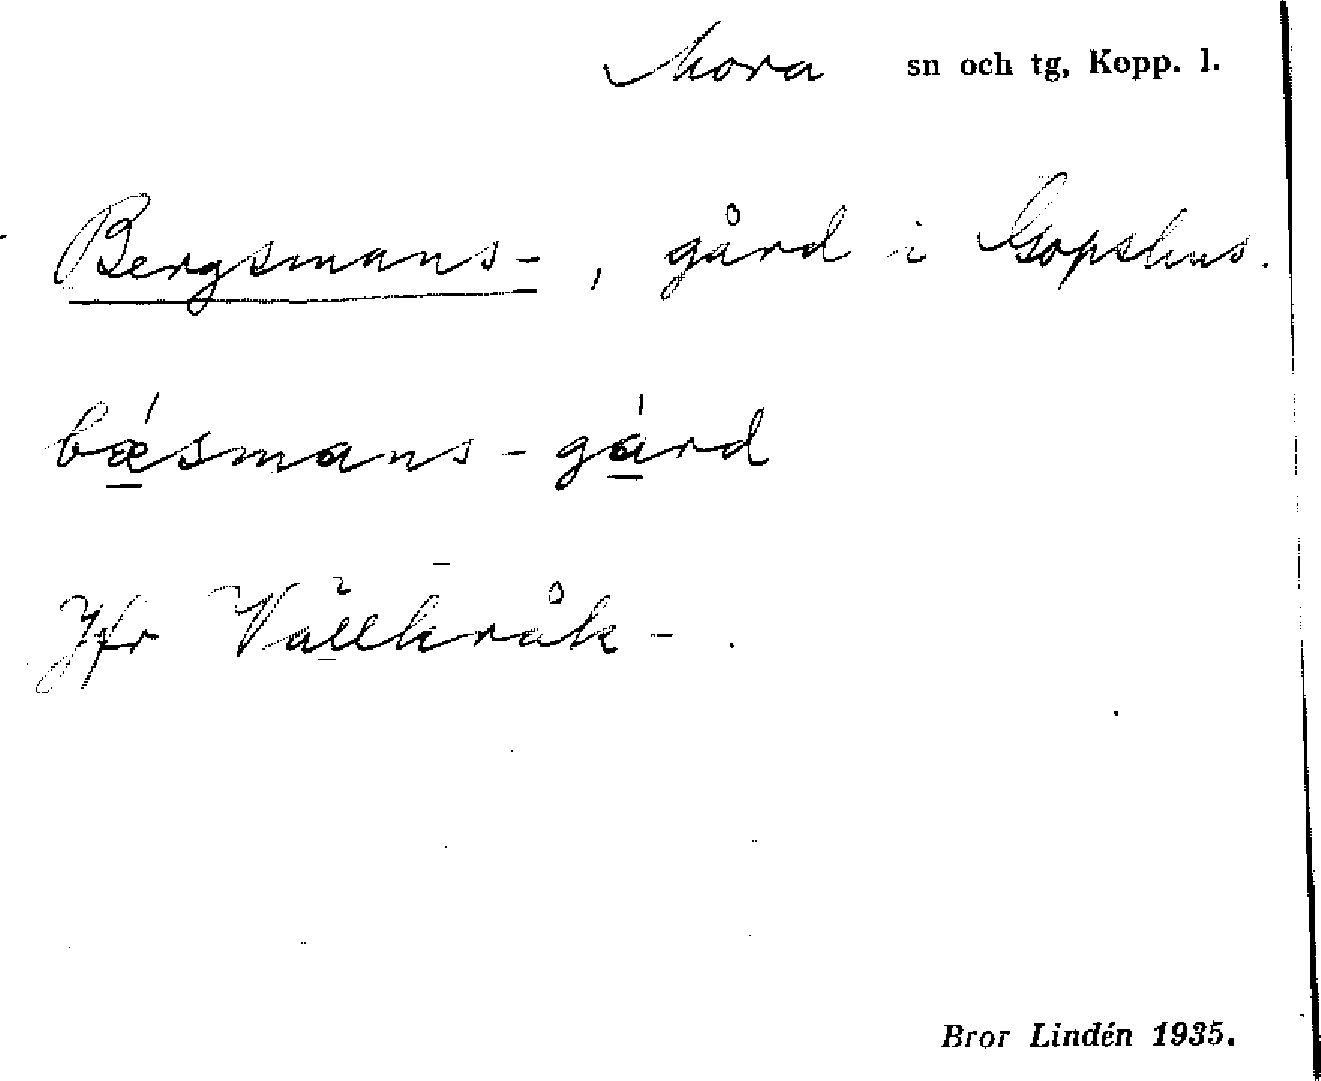 Mora sn och tg, Kopp. l.
Bergsmans-, gård i Gopshus.
bǽsmans-gárd
Jfr Vållkråk-.
Bror Lindén 1935.